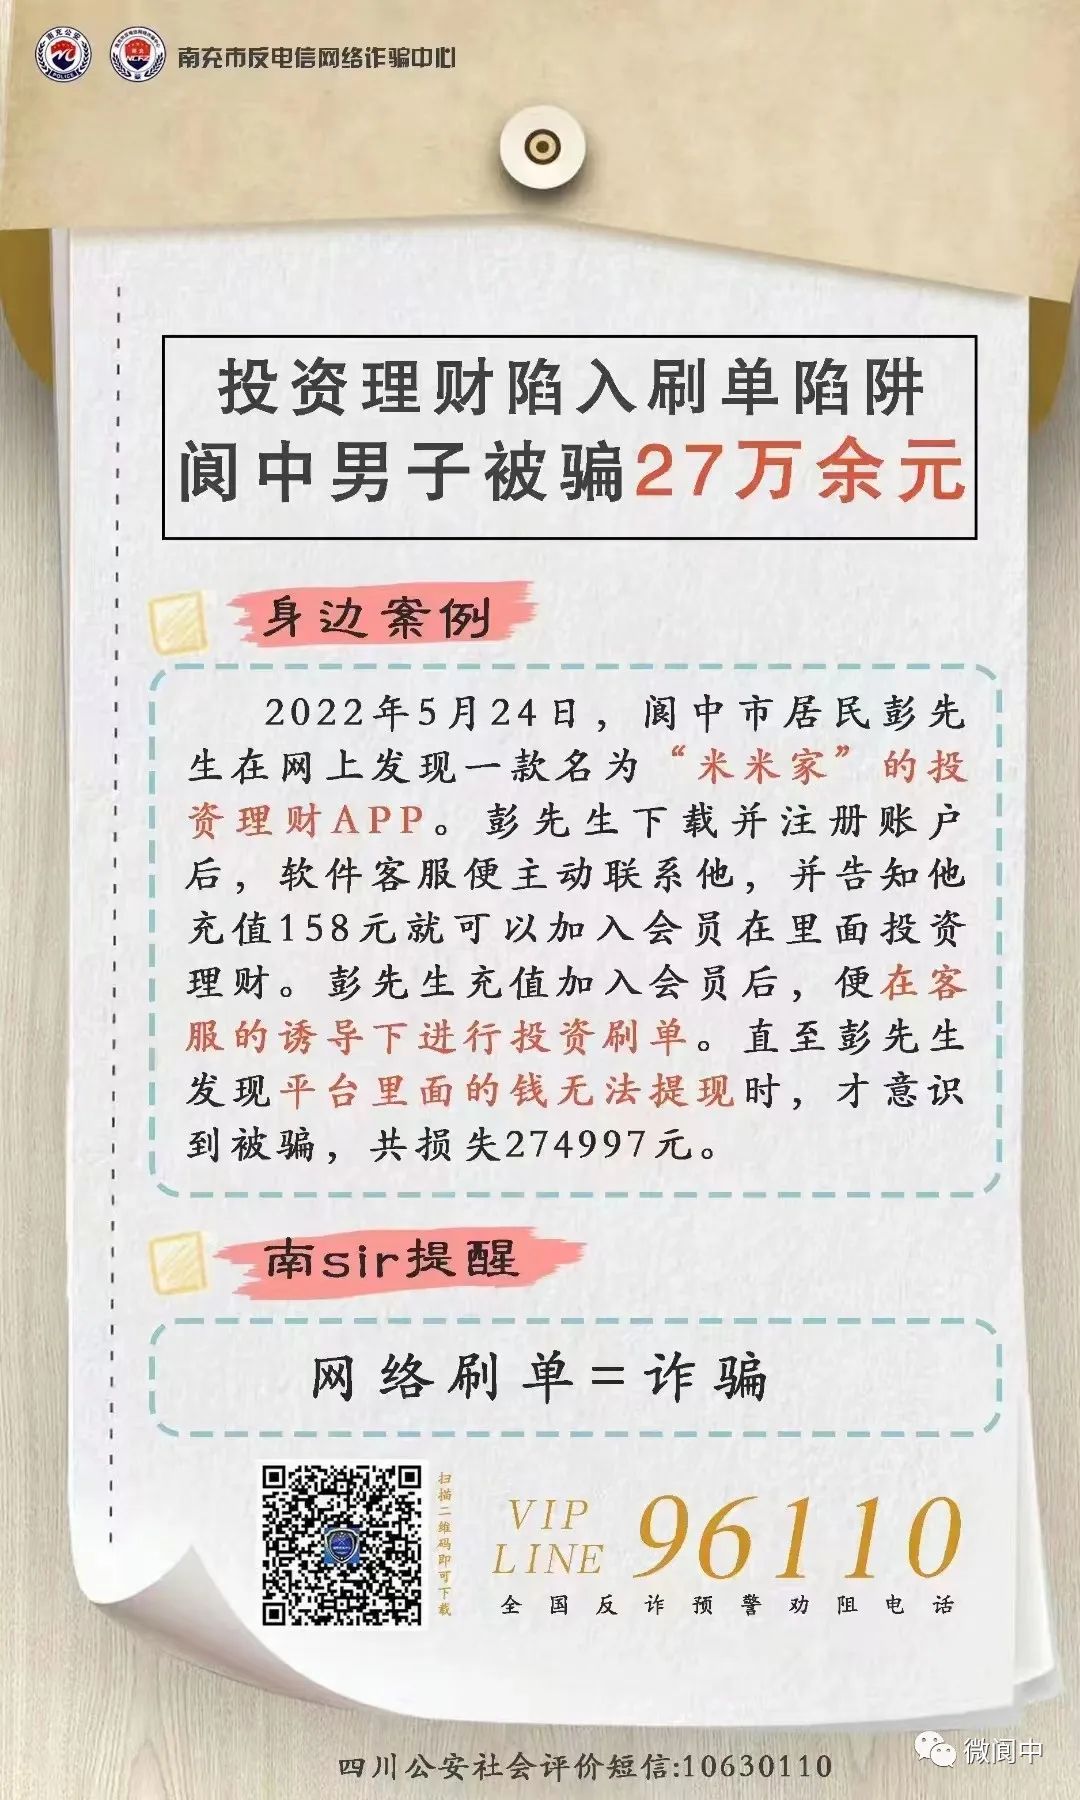 南充市反电信网络诈骗中心
投资理财陷入刷单陷阱
阆中男子被骗27万余元
身边案例
2022年5月24日，阆中市居民彭先
生在网上发现一款名为“米米家”的投
资理财APP。彭先生下载并注册账户
后，软件客服便主动联系他，并告知他
充值158元就可以加入会员在里面投资
理财。彭先生充值加入会员后，便在客
服的诱导下进行投资刷单。直至彭先生
发现平台里面的钱无法提现时，才意识
到被骗，共损失274997元。
南sir提醒
网络刷单=诈骗
扫描二维码即可下载
VIP
LINE
96110
全国反诈预警劝阻电话
四川公安社会评价短信:10630110
微阆中